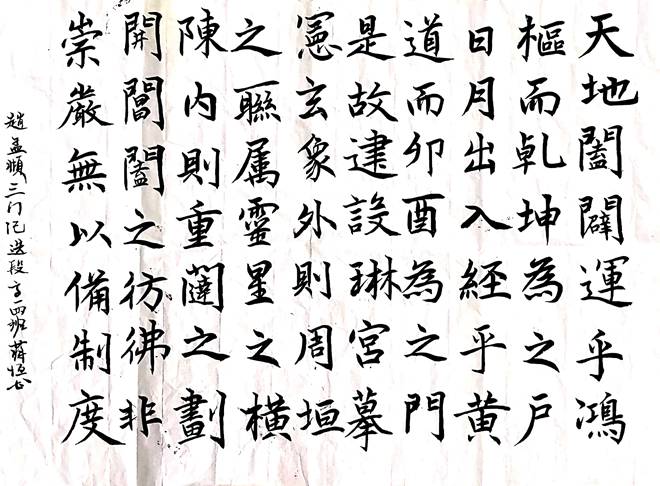 天地闔闢運乎鴻
樞而乹坤為之户
日月出入経乎黄
道而卯酉為之門
是故建設琳宫摹
憲玄象外則周垣
之聯属靈星之横
陳内則重闥之劃
開閶闔之彷彿非
崇嚴無以備制度
趙孟頫三门记选段 高一四班 薛恒